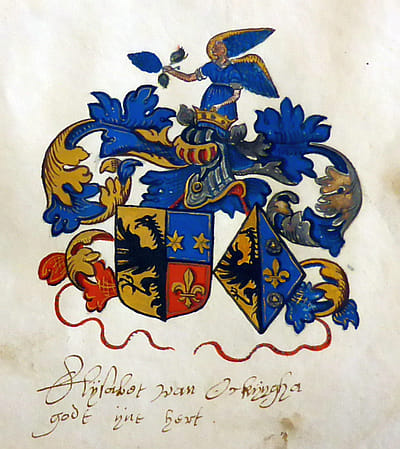 Elijsabet van Ockijngha
godt ijnt hert.